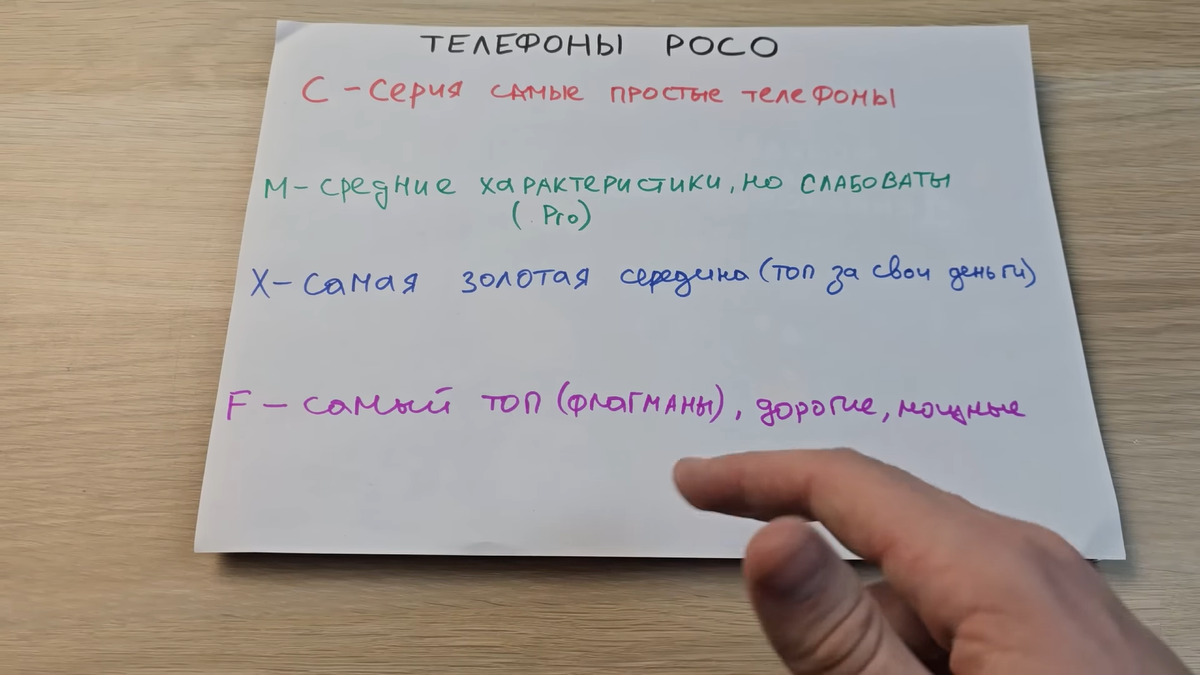 ТЕЛЕФОНЫ POCO
C - Серия самые простые телефоны
M - средние характеристики, но слабоваты
(. Pro)
X - самая золотая середина (топ за свои деньги)
F - самый топ (флагманы), дорогие, мощные